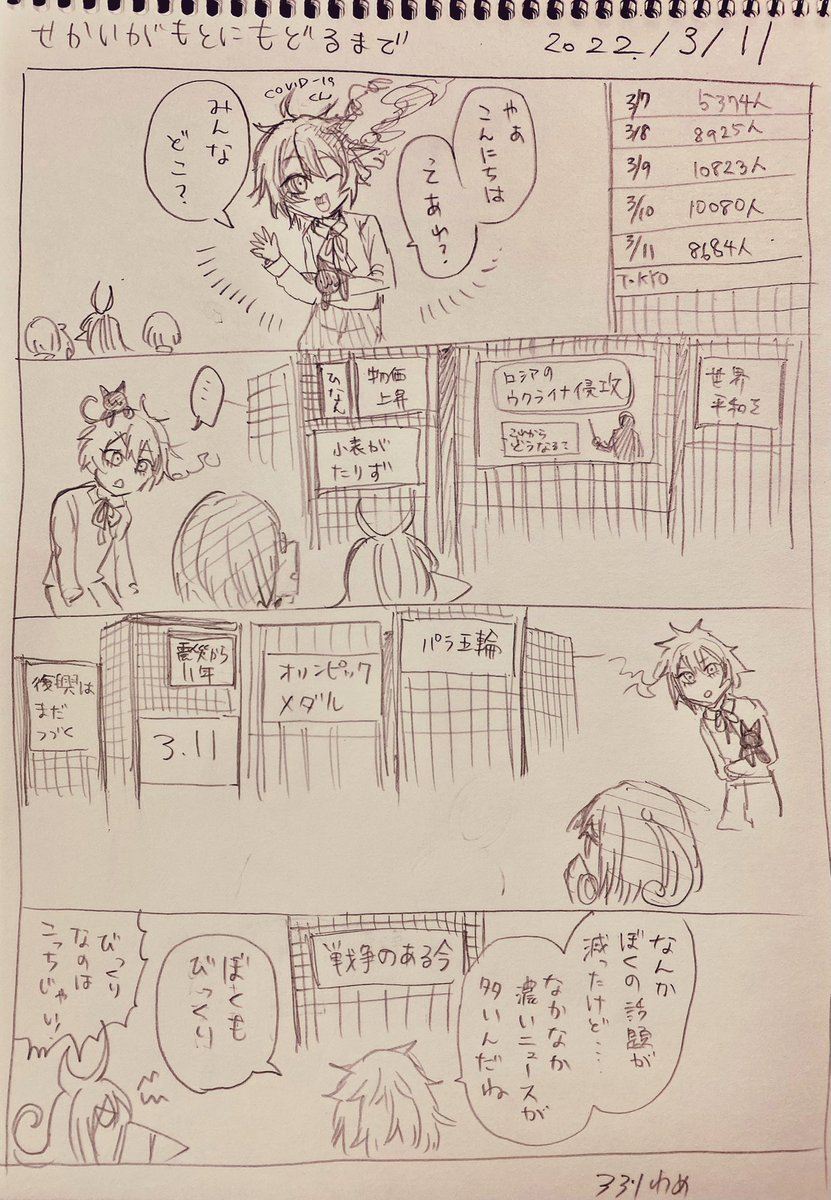 せかいがもとにもどるまで
2022./3/11
COVID-19
くん
やぁ
こんにちは
そあれ?
みんな
どこ?
3/7 5374人
3/8 8925人
3/9 10823人
3/10 10080人
3/11 8684人
TOKYO
・・・
物価
上昇
小麦が
たりず
ロシアの
ウクライナ侵攻
これから
どうなるて
世界
平和を
復興は
まだ
つづく
震災から
11年
3.11
オリンピック
メダル
パラ五輪
なんか
ぼくの話題が
減ったけど…
なかなか
濃いニュースが
多いんだね
戦争のある今
ぼくも
びっくり
びっくり
なのは
こっちじゃい!